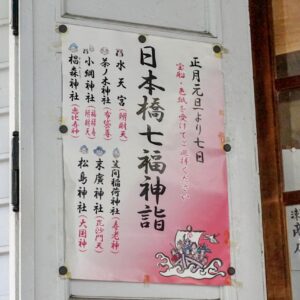 正月元旦より七日
宝船・色紙を受けてご巡拝ください
日本橋七福神詣
水天宮(弁財天)
茶ノ木神社(布袋尊)
小網神社(福禄寿 弁財天)
椙森神社(恵比寿神)
笠間稲荷神社(寿老神)
末廣神社(毘沙門天)
松島神社(大国神)